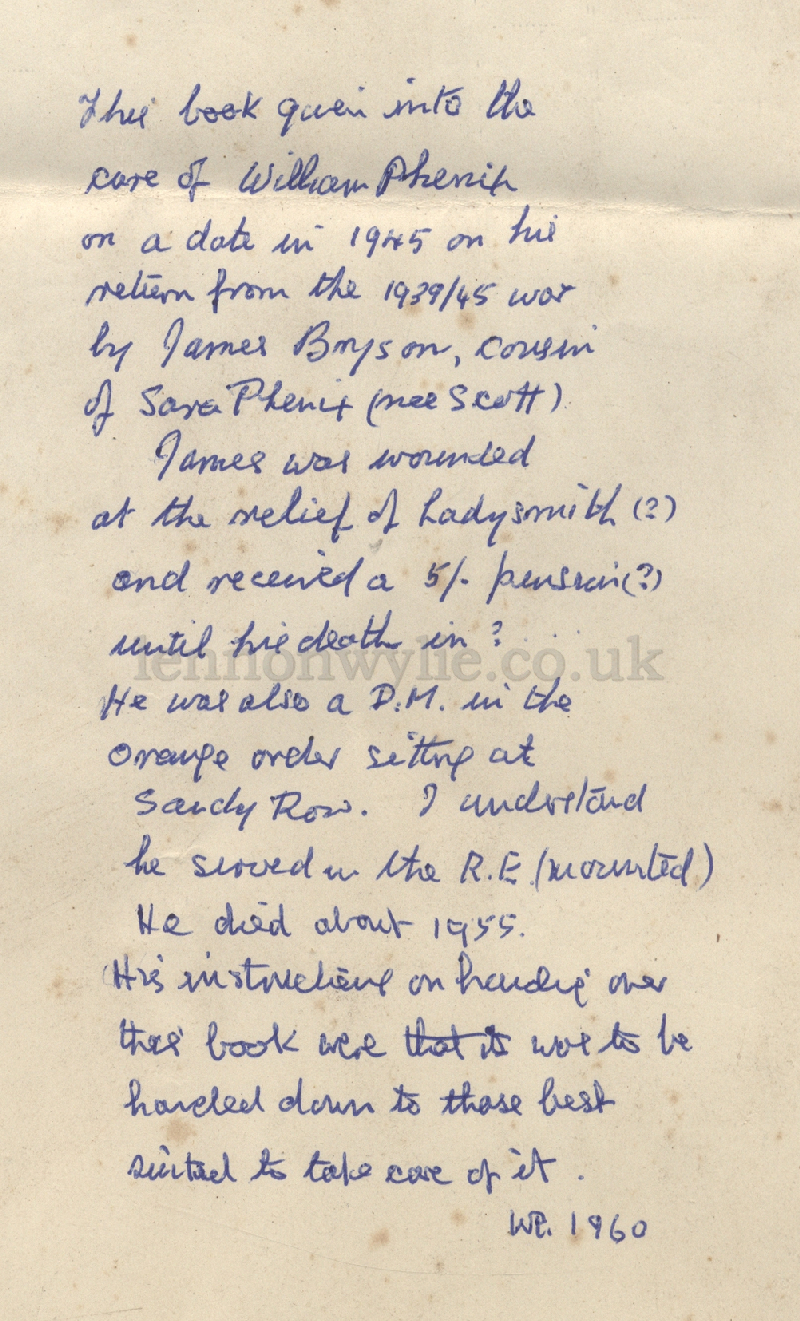 This book given into the
care of William Phenix
on a date in 1945 on his
return from the 1939/45 war
by James Bryson, cousin
of Sara Phenix (nee Scott)
James was wounded
at the relief of Ladysmith (?)
and received a 5/- pension (?)
until his death in ?
lennonwylie.co.uk
He was also a D.M. in the
Orange order sitting at
Sandy Row. I understand
he served in the R.E. (mounted)
He died about 1955.
His instructions on handing over
this book were that it was to be
handed down to those best
suited to take care of it.
WP. 1960